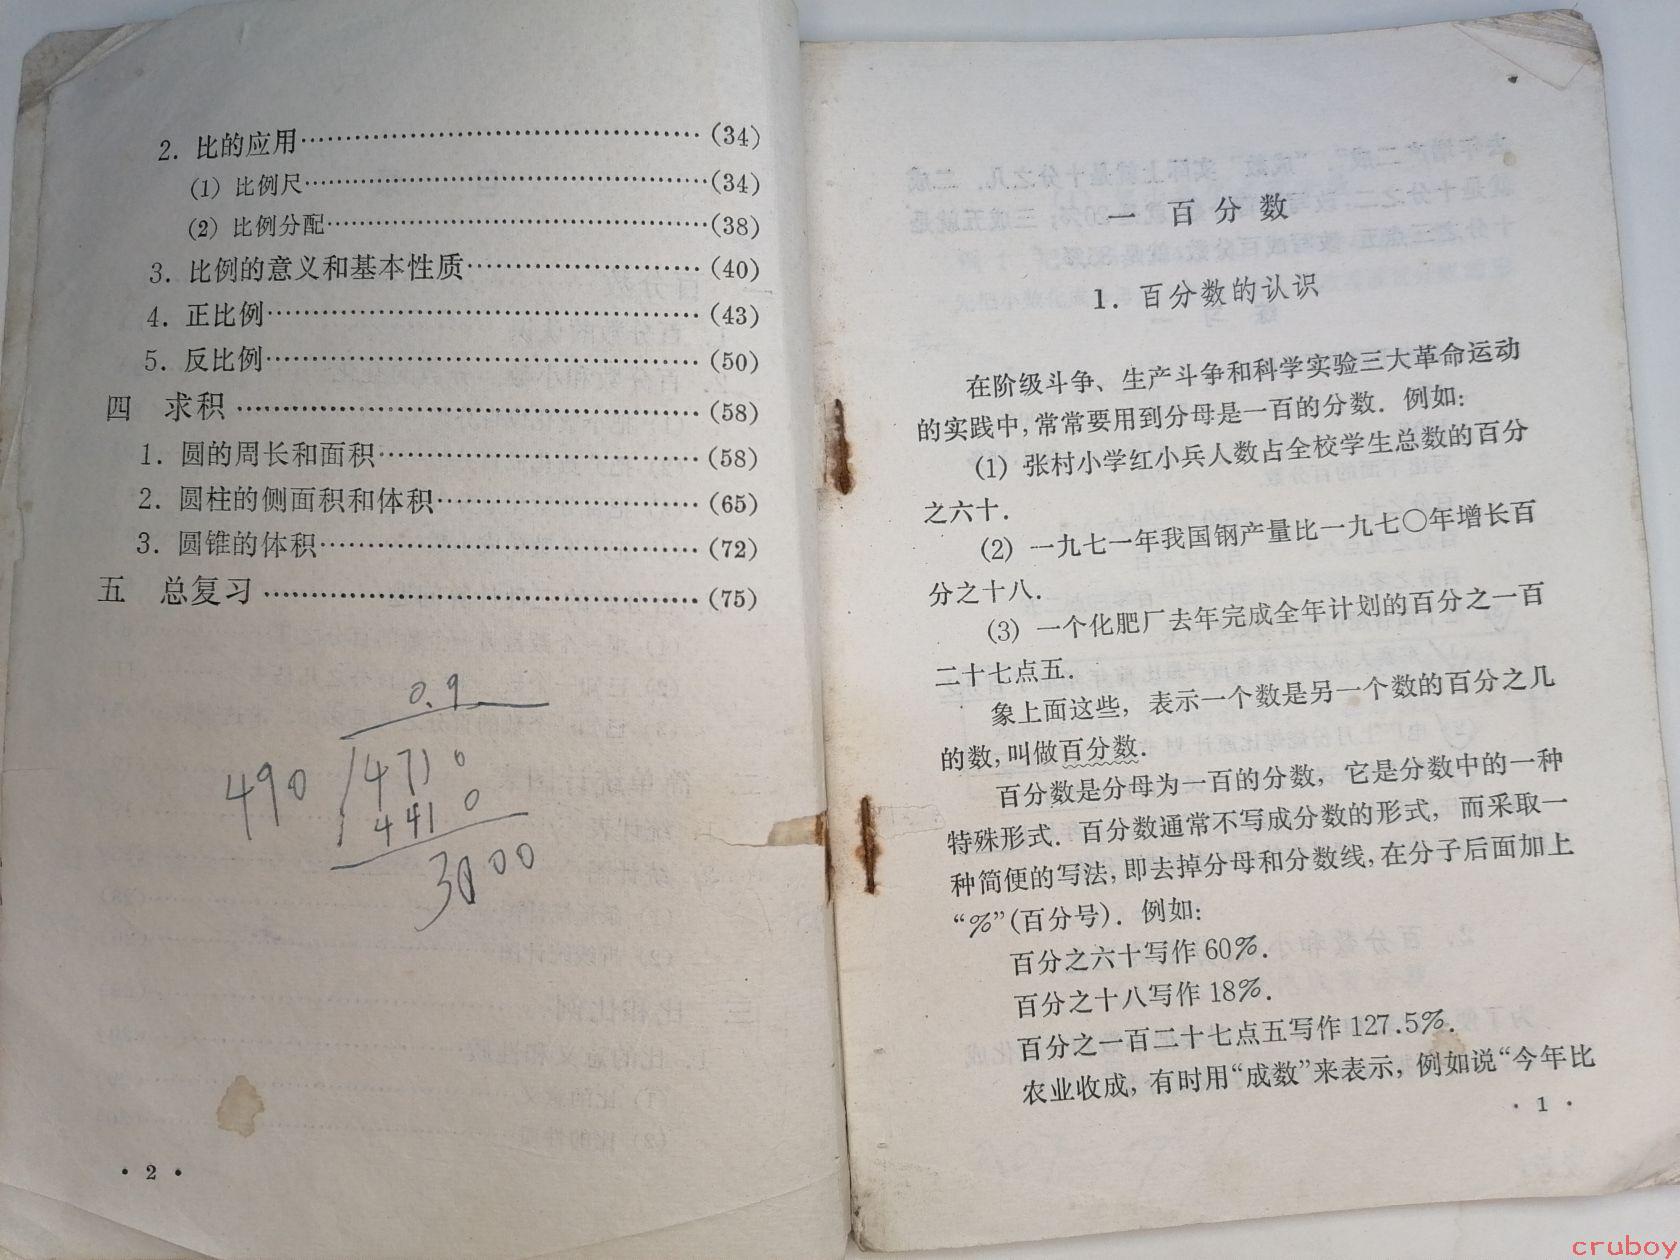 2. 比的应用……………………………………(34)
(1) 比例尺……………………………………(34)
(2) 比例分配…………………………………(38)
3. 比例的意义和基本性质……………………(40)
4. 正比例………………………………………(43)
5. 反比例………………………………………(50)
四 求积…………………………………………(58)
1. 圆的周长和面积……………………………(58)
2. 圆柱的侧面积和体积………………………(65)
3. 圆锥的体积…………………………………(72)
五 总复习………………………………………(75)
0.9
490
4710
4410
3000
· 2 ·
一 百分数
1. 百分数的认识
在阶级斗争、生产斗争和科学实验三大革命运动
的实践中,常常要用到分母是一百的分数. 例如:
(1) 张村小学红小兵人数占全校学生总数的百分
之六十.
(2) 一九七一年我国钢产量比一九七〇年增长百
分之十八.
(3) 一个化肥厂去年完成全年计划的百分之一百
二十七点五.
象上面这些, 表示一个数是另一个数的百分之几
的数,叫做百分数.
百分数是分母为一百的分数, 它是分数中的一种
特殊形式. 百分数通常不写成分数的形式, 而采取一
种简便的写法,即去掉分母和分数线,在分子后面加上
“%”(百分号). 例如:
百分之六十写作 60%.
百分之十八写作 18%.
百分之一百二十七点五写作 127.5%.
农业收成, 有时用“成数”来表示, 例如说“今年比
· 1 ·
cruboy